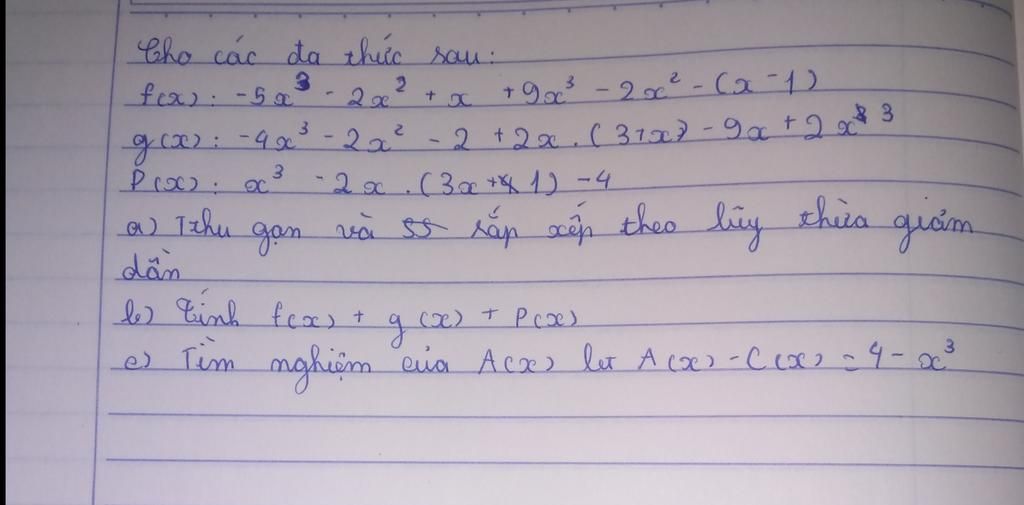 Cho các đa thức sau:
f(x): -5x³ - 2x² + x + 9x³ - 2x² - (x - 1)
g(x): -4x³ - 2x² - 2 + 2x . (3+x) - 9x + 2x³
P(x): x³ - 2x . (3x + 1) - 4
a) Thu gọn và sắp xếp theo lũy thừa giảm
dần
b) Tính f(x) + g(x) + P(x)
c) Tìm nghiệm của A(x) bt A(x) - C(x) = 4 - x³